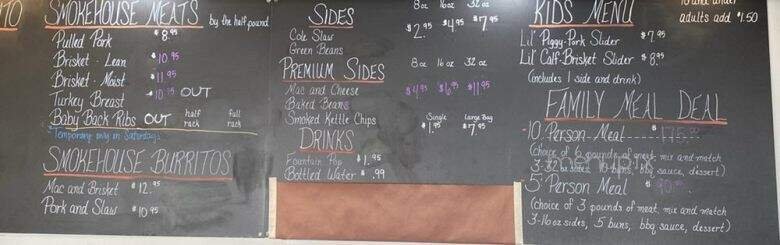 TO
SMOKEHOUSE MEATS by the half pound
Pulled Pork $8.95
Brisket - Lean $10.95
Brisket - Moist $11.95
Turkey Breast OUT
Baby Back Ribs OUT half rack full rack
*Temporary only on Saturdays
SMOKEHOUSE BURRITOS
Mac and Brisket $12.95
Pork and Slaw $10.95
SIDES 8oz 16oz 32oz
$2.95 $4.95 $7.95
Cole Slaw
Green Beans
PREMIUM SIDES 8oz 16oz 32oz
Mac and Cheese $4.95 $6.95 $11.95
Baked Beans
Smoked Kettle Chips Single $1.95 Large Bag $7.95
DRINKS
Fountain Pop $1.95
Bottled Water $.99
KIDS MENU
10 and under
adults add $1.50
Lil' Piggy-Pork Slider $7.95
Lil' Calf-Brisket Slider $8.95
(includes 1 side and drink)
FAMILY MEAL DEAL
10 Person Meal $175.
(choice of 6 pounds of meat, mix and match
3-32 oz sides, 10 buns, bbq sauce, dessert)
5 Person Meal $90.
(choice of 3 pounds of meat, mix and match
3-16 oz sides, 5 buns, bbq sauce, dessert)